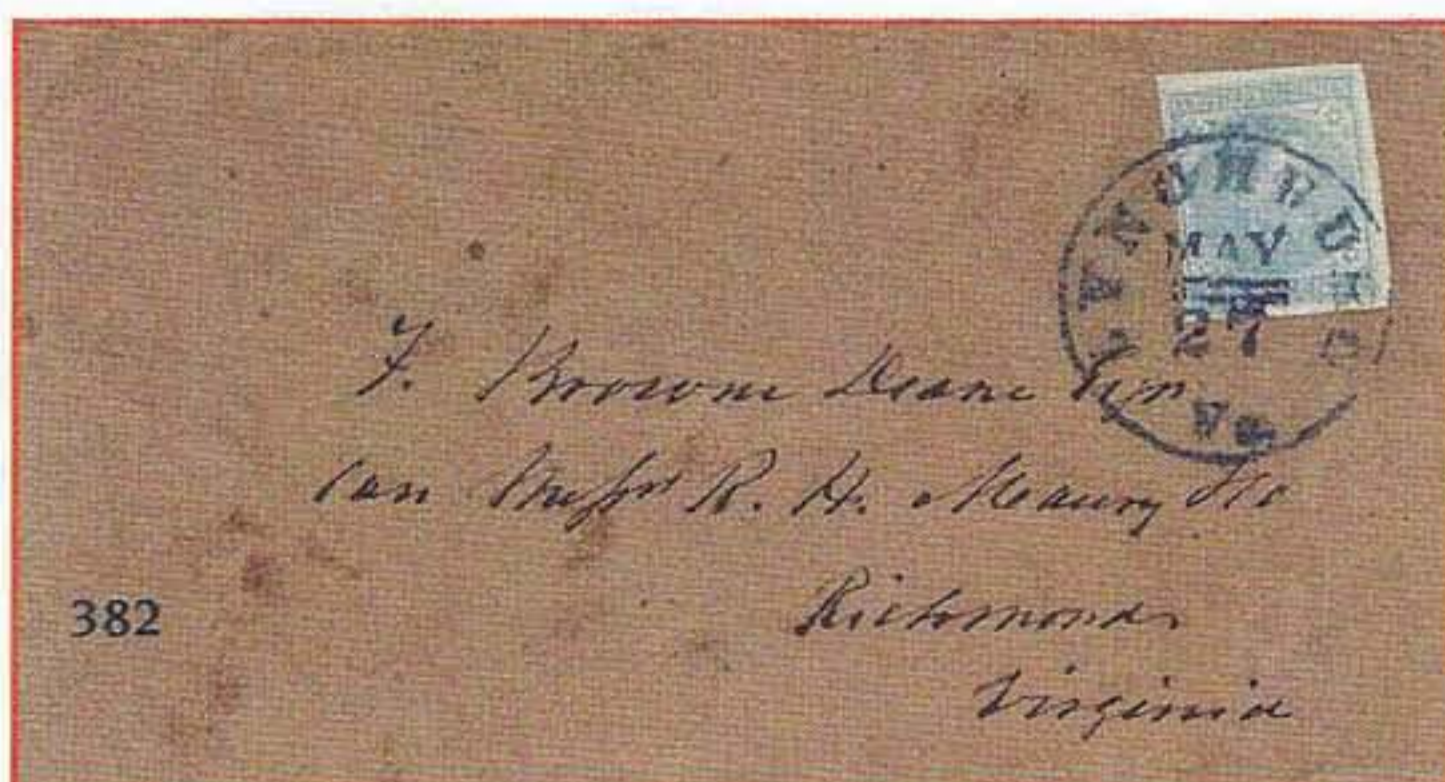 LYNCHBURG
MAY
27
VA
F. Browne Deane Jun
Care Messrs R. H. Meaury &Co
Richmond
Virginia
382